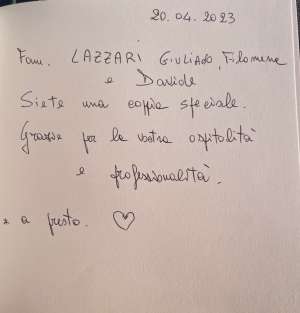 20.04.2023
Fam. LAZZARI GIULIANO, Filomena
e Davide
Siete una coppia speciale.
Grazie per la vostra ospitalità
e professionalità.
a presto. ♡